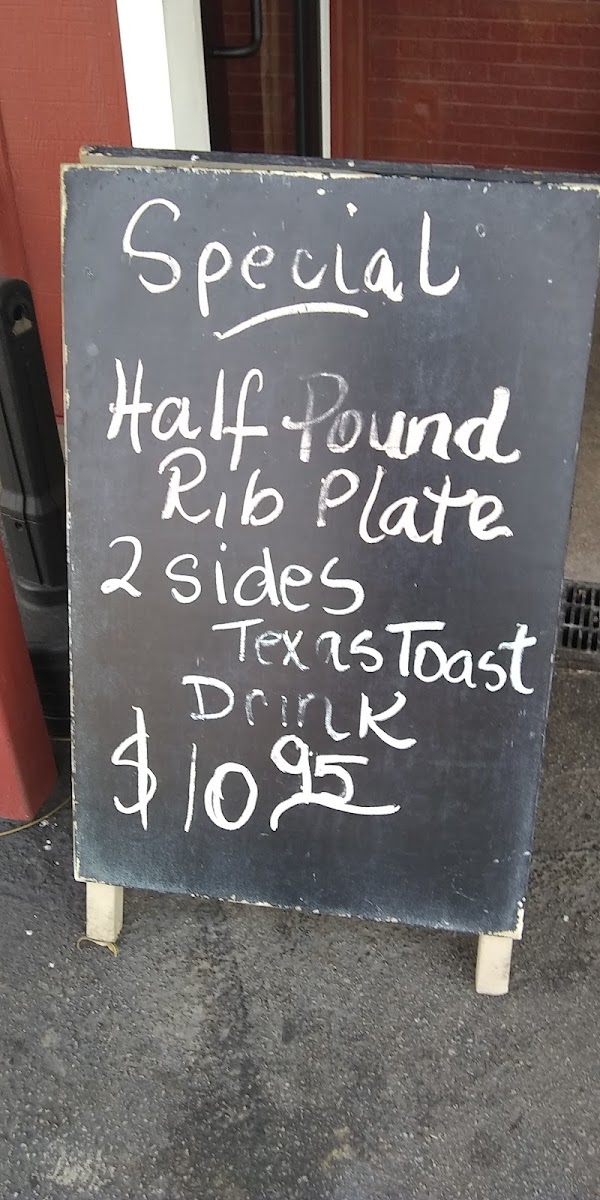 Special
Half Pound
Rib Plate
2 sides
Texas Toast
Drink
$10 95